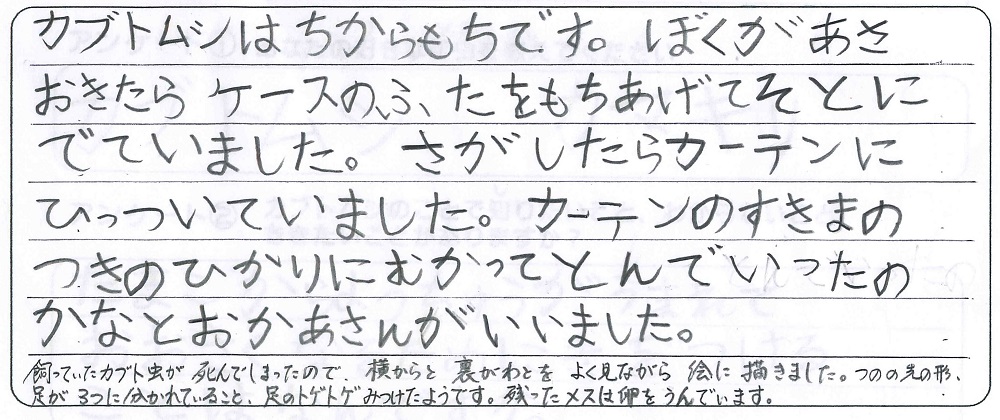 カブトムシはちからもちです。ぼくがあさ
おきたら ケースのふたをもちあげてそとに
でていました。さがしたらカーテンに
ひっついていました。カーテンのすきまの
つきのひかりにむかってとんでいったの
かなとおかあさんがいいました。
飼っていたカブト虫が 死んでしまったので、横からと 裏がわとを よく見ながら 絵に 描きました。つのの先の形、
足が 3つに分かれていること、足のトゲトゲ みつけたようです。残ったメスは卵をうんでいます。